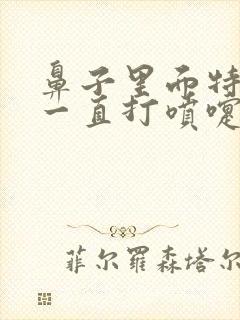 鼻子里而特
一直打喷嚏
菲尔罗森塔尔